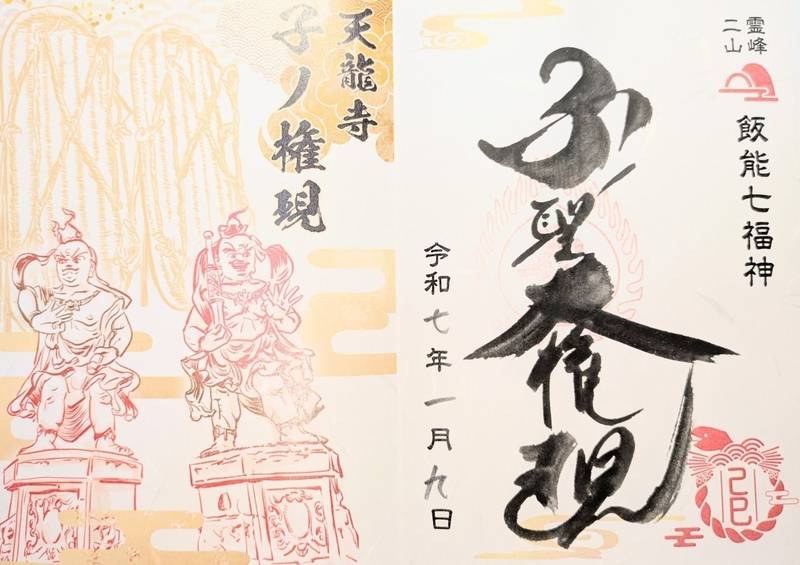 霊峰
二山
飯能七福神
子ノ聖大権現
令和七年一月九日
己巳
天龍寺
子ノ権現